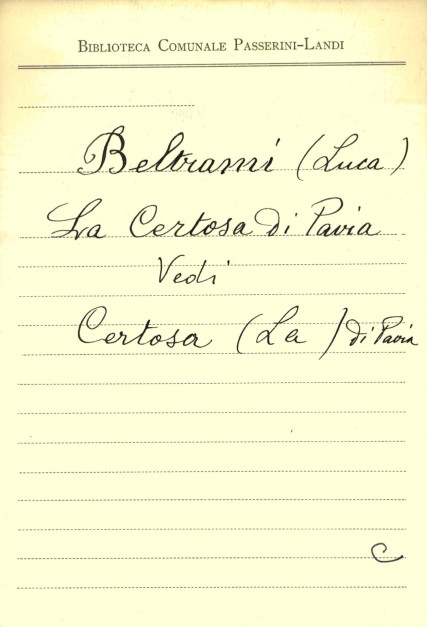 Biblioteca Comunale Passerini-Landi
Beltrami (Luca)
La Certosa di Pavia
Vedi
Certosa (La) di Pavia
C